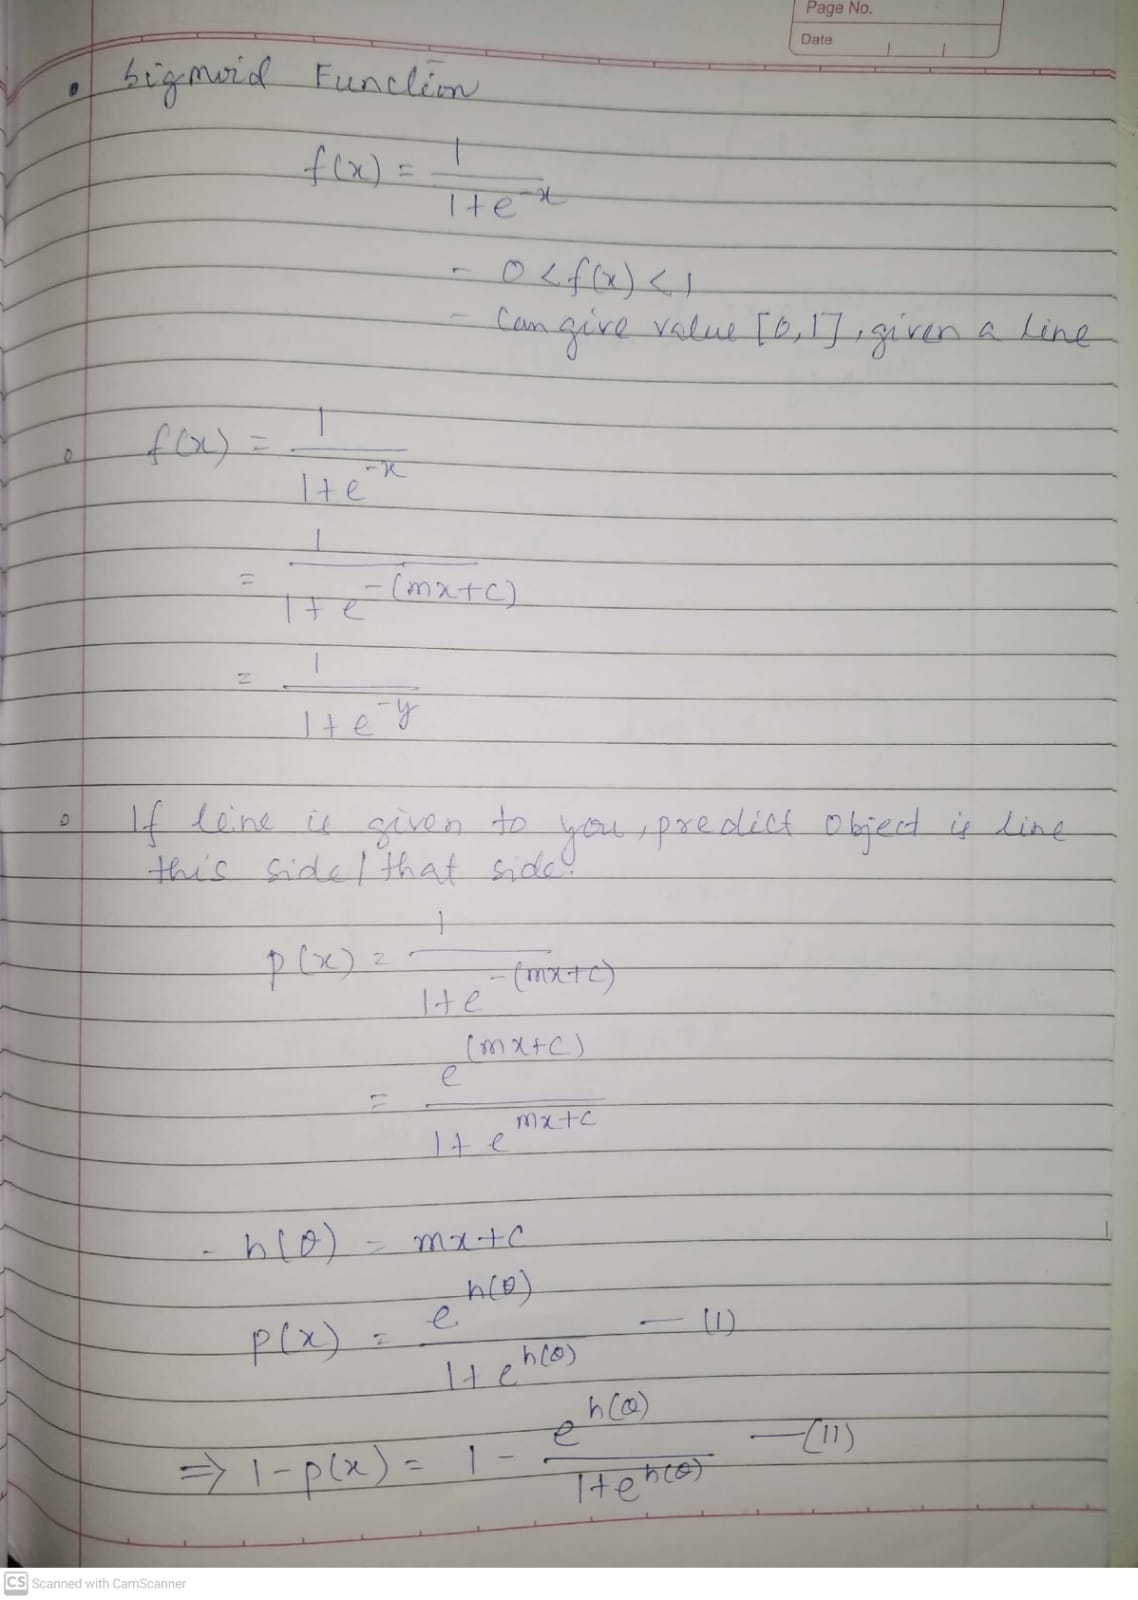 Page No.
Date
Sigmoid Function
f(x) = 1 / (1+e^-x)
- 0 < f(x) < 1
- Can give value [0,1], given a line
f(x) = 1 / (1+e^-x)
= 1 / (1+e^-(mx+c))
= 1 / (1+e^-y)
If line is given to you, predict object is line
this side / that side.
p(x) = 1 / (1+e^-(mx+c))
= e^(mx+c) / (1+e^mx+c)
- h(θ) = mx+c
p(x) = e^h(θ) / (1+e^h(θ)) — (I)
⇒ 1-p(x) = 1 - e^h(θ) / (1+e^h(θ)) — (II)
CS Scanned with CamScanner